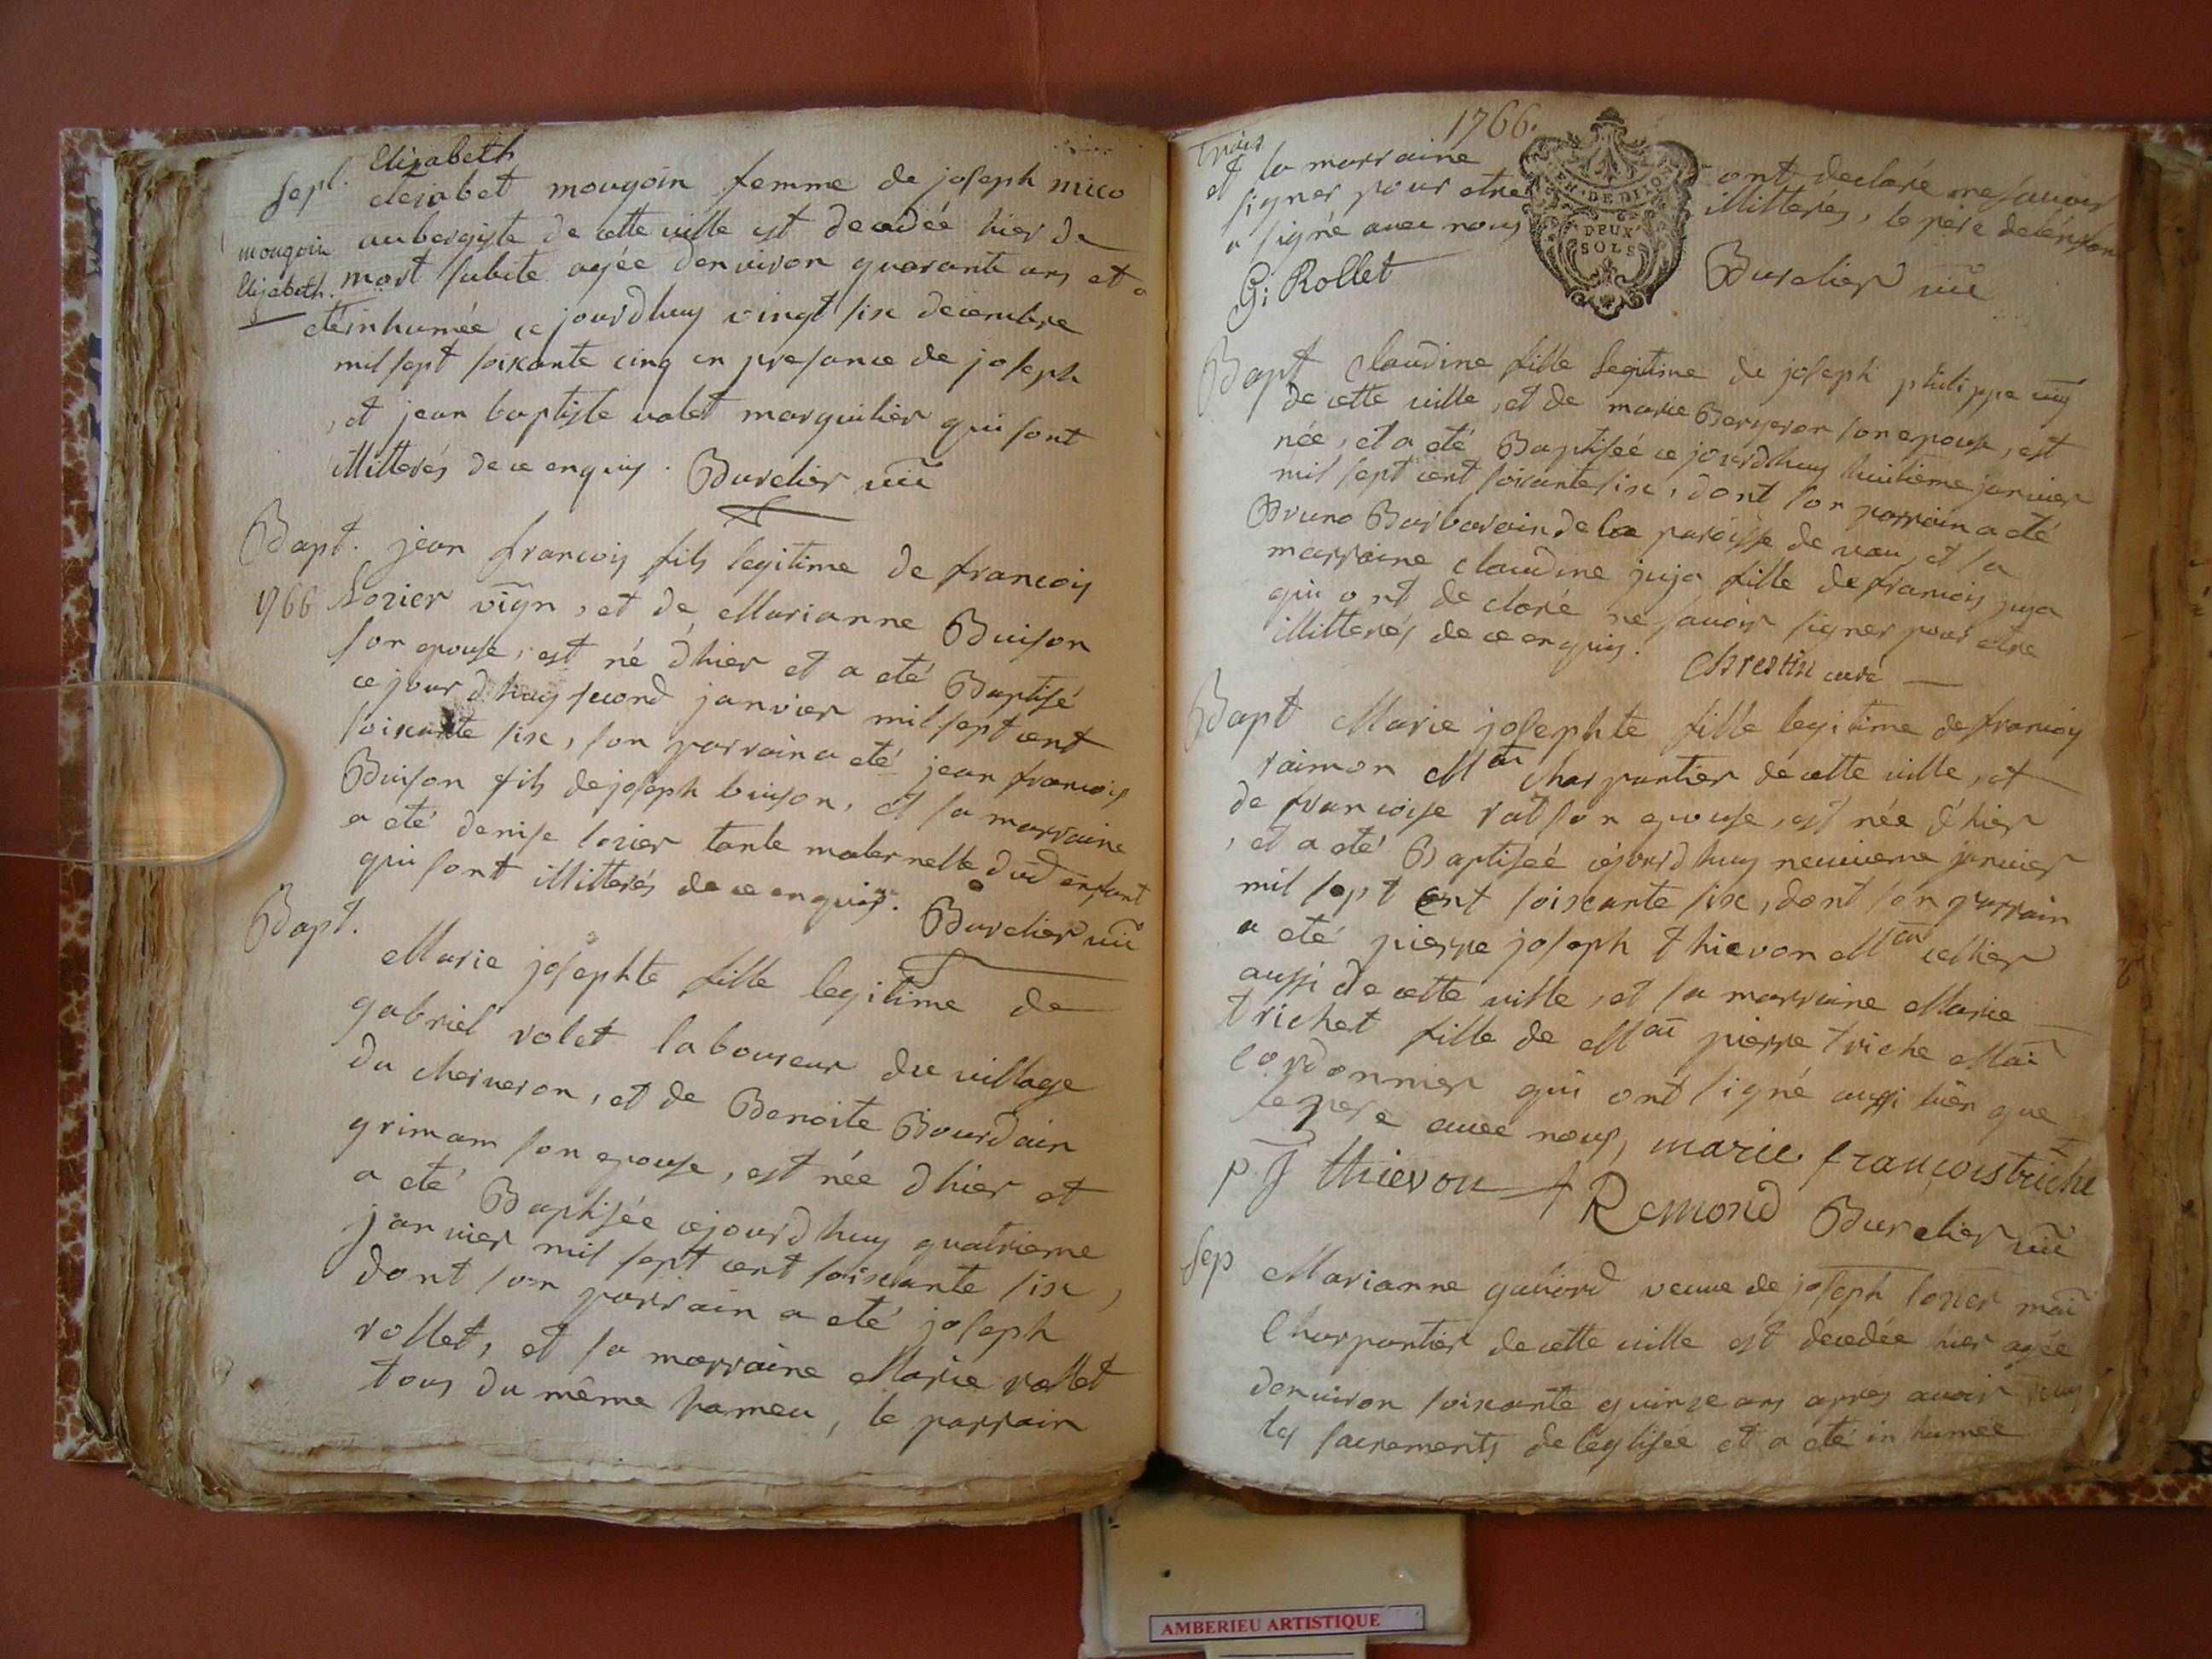 Elizabeth
Sept. elizabet mougoin femme de joseph nico
aubergiste de cette ville est decedée hier de
mougoin
Elizabeth. mort subite agée denviron quarante ans et a
eté inhumée ce jourdhuy vingt six decembre
mil sept soixante cinq en presance de joseph
, et jean baptiste valet marguilier qui sont
illitterés de ce enquis. Burelier vic̃
Bapt. jean francois fils legitime de francois
1766 Lozier vign, et de Marianne Buison
son epouse, est né d'hier et a eté Baptisé
ce jourdhuy second janvier mil sept cent
soixante six, son parrain a eté jean francois
Buison fils de joseph buison, et sa marraine
a eté denise lozier tante maternelle dud enfant
qui sont illitterés de ce enquis. Burelier vic̃
Bapt.
Marie josephte fille legitime de
gabriel volet laboureur du village
du cherveron, et de Benoite Bourdain
grimam son epouse, est née d'hier et
a eté Baptisée cejourdhuy quatrieme
janvier mil sept cent soixante six,
dont son parrain a eté joseph
rollet, et sa marraine Marie rollet
tous du même hameu, le parrain
1766.
trois
et la marraine ont declaré ne savoir
signer pour etre illitterés, le père de lenfan
a signé avec nous
G: Rollet Burelier vic̃
EN. DE DIJON
DEUX
SOLS
Bapt Claudine fille legitime de joseph philippe vig̃
de cette ville, et de marie Bergeron son epouse, est
née, et a eté Baptisée ce jourdhuy huitieme janvier
mil sept cent soixante six, dont son parrain a eté
Bruno Barbarain de la paroisse de vau, et la
marraine claudine juja fille de francois juja
qui ont declaré ne savoir signer pour etre
illitterés de ce enquis. Chrestin curé
Bapt Marie josephte fille legitime de francois
raimon Mᵃᶦ charpantier de cette ville, et
de francoise rat son epouse, est née d'hier
, et a eté Baptisée cejourdhuy neuvieme janvier
mil sept cent soixante six, dont son parrain
a eté pierre joseph thievon Mᵃᶦ sellier
aussi de cette ville, et sa marraine Marie
trichet fille de Mᵃᶦ pierre triché Mai
cordonnier qui ont signé aussi bien que
le pere avec nous, marie francois triche
P. J thievon f Remond Burelier vic̃
Sep Marianne gaviord veuve de joseph lozier mai
Charpantier de cette ville est decedée hier agée
denviron soixante quinze ans aprés avoir
les sacrements de léglisée et a eté inhumée
AMBERIEU ARTISTIQUE